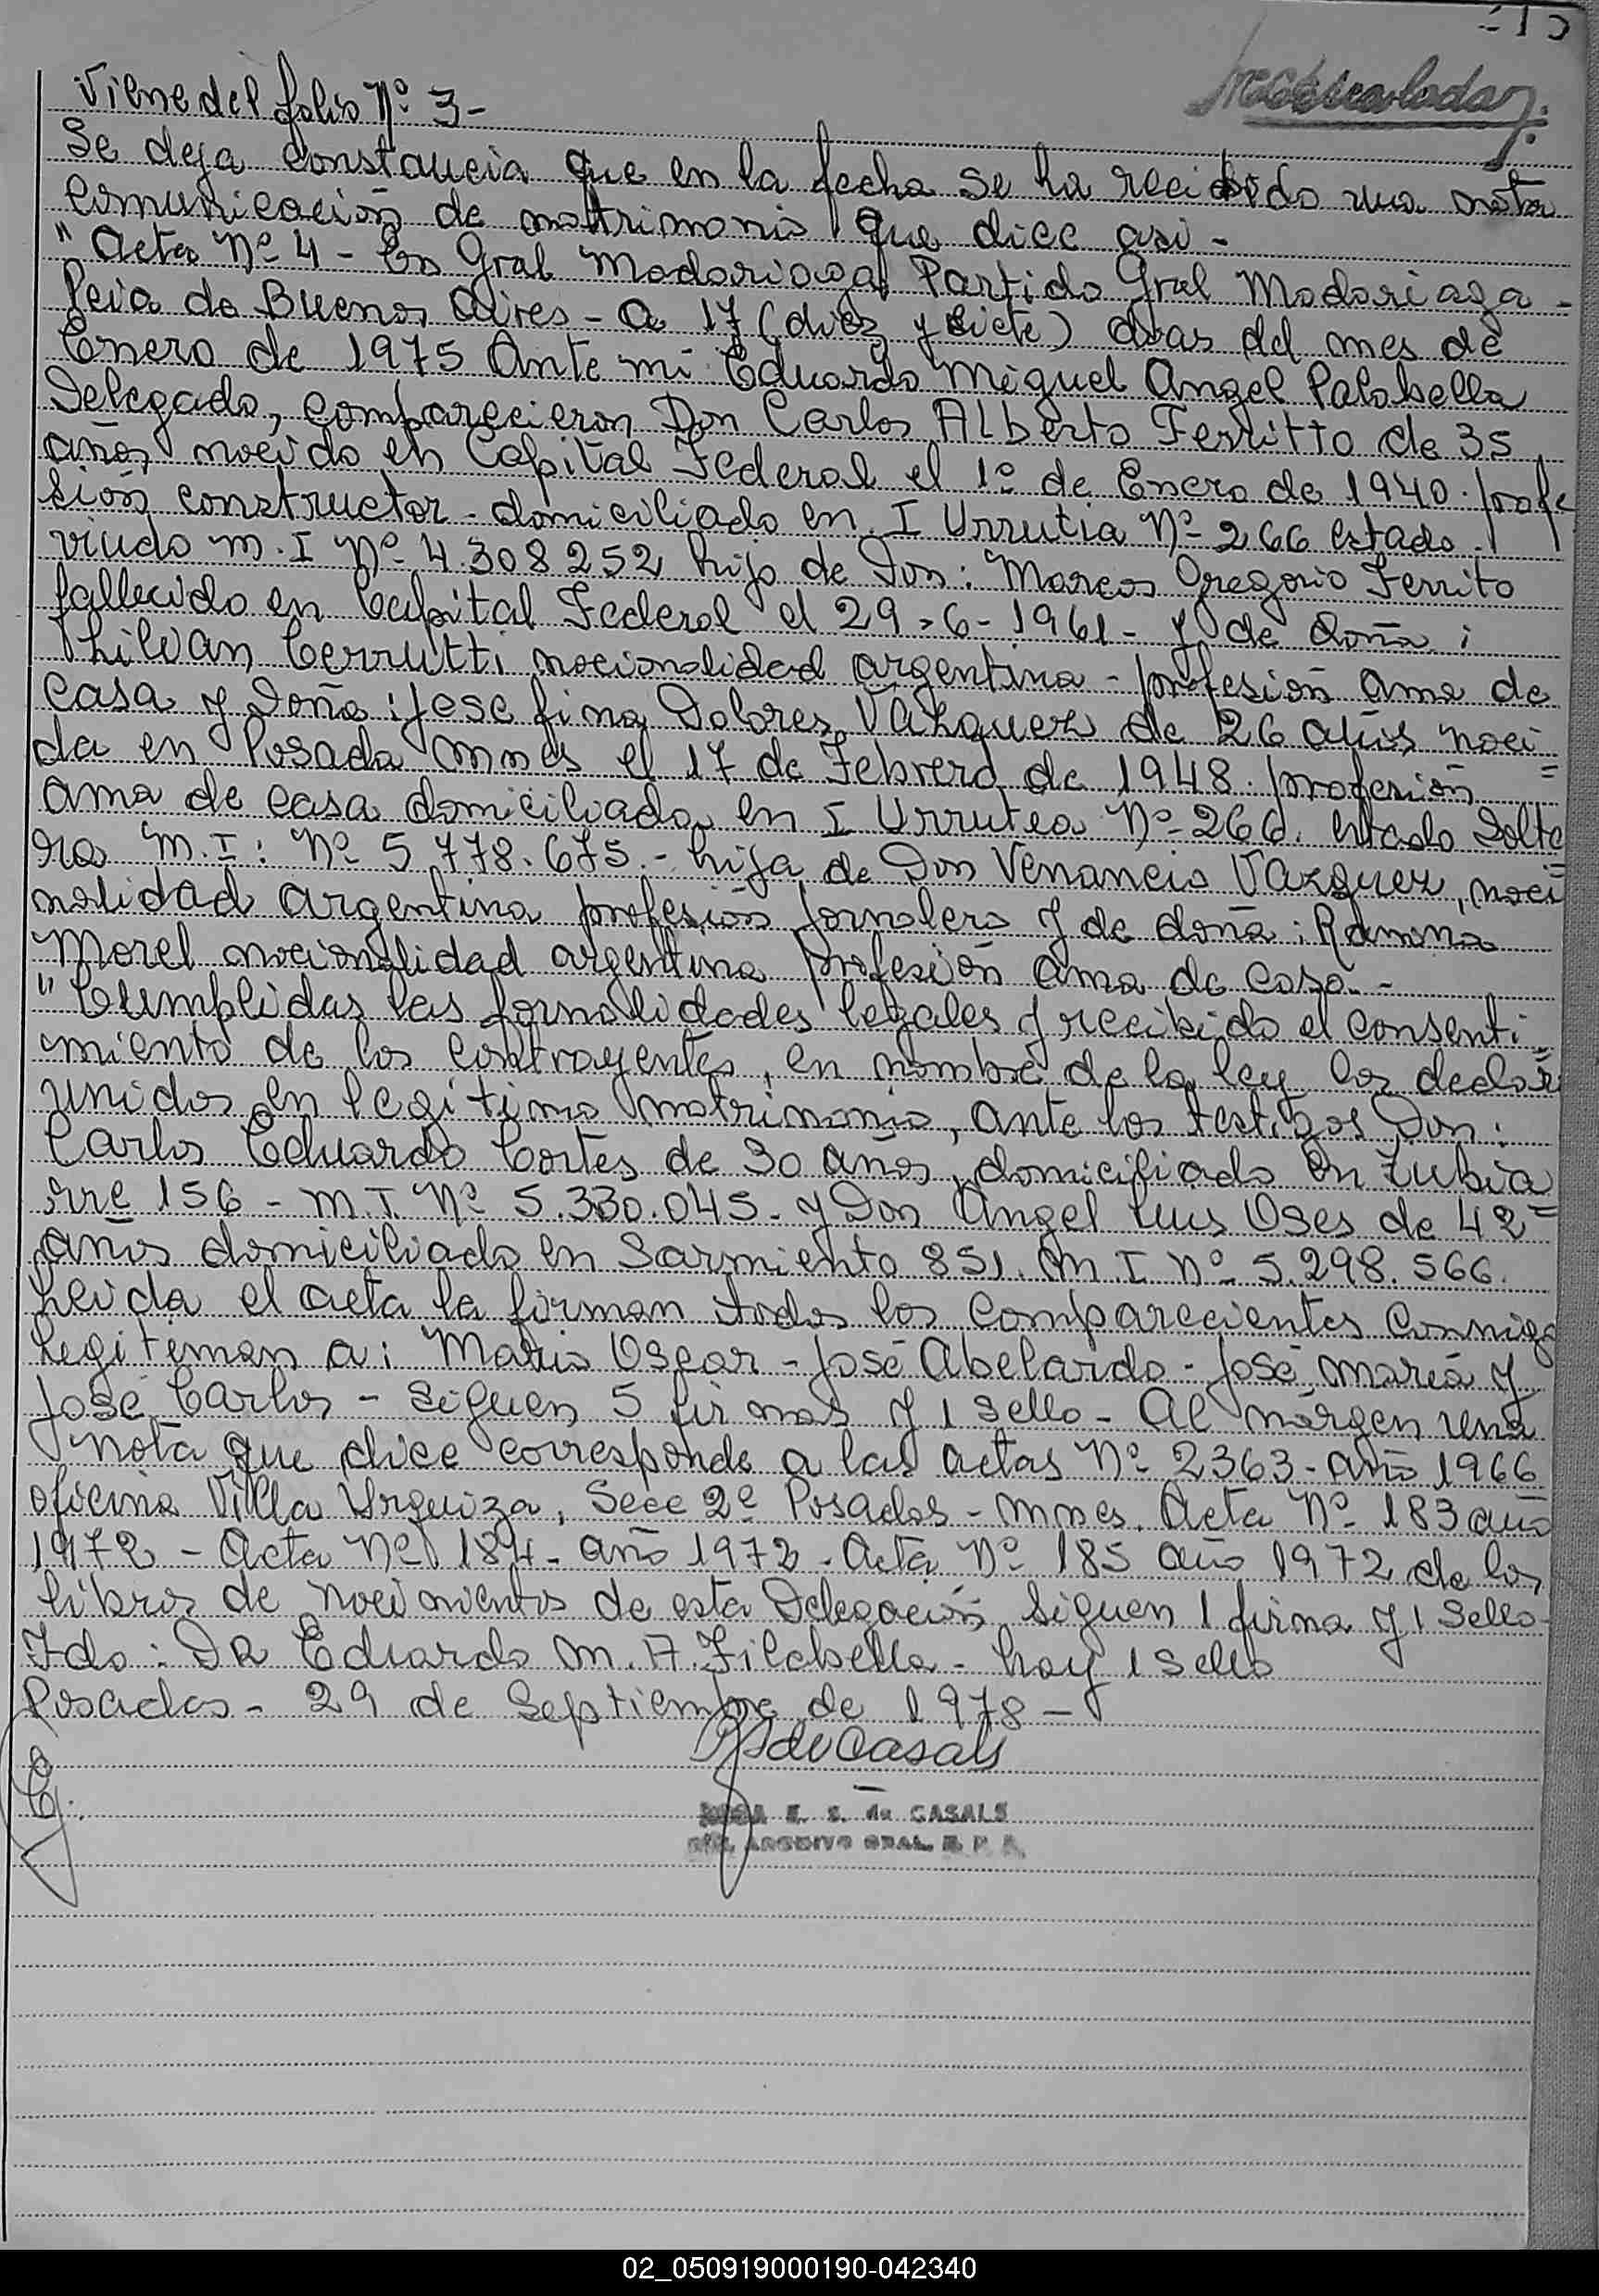 Viene del folio Nº 3-
Se deja constancia que en la fecha se ha recibido una nota
comunicación de matrimonio que dice asi -
"Acta Nº 4 - En Gral Madariaga Partido Gral Madariaga -
Pcia de Buenos Aires - a 17 (diez y siete) dias del mes de
Enero de 1975 Ante mi Eduardo Miguel Angel
Delegado, comparecieron Don Carlos Alberto Ferritto de 35
años nacido en Capital Federal el 1º de Enero de 1940. profe
sión constructor - domiciliado en I Urrutia Nº 266 estado
viudo M.I Nº 4.308252 hijo de Don: Marcos Gregorio Ferrito
fallecido en Capital Federal el 29-6-1961- y de doña:
Cerrutti nacionalidad argentina - profesión ama de
casa y Doña: Josefina Dolores Vazquez de 26 años naci
da en Posada Mnes el 17 de Febrero de 1948. profesión =
ama de casa domiciliada en I Urrutea Nº 266. estado Solte
ra M.I: Nº 5.778.675.- hija de Don Venancio Vazquez, naci
nalidad argentina profesión jornalero y de doña: Ramona
Morel nacionalidad argentina profesión ama de casa.-
"Cumplidas las formalidades legales y recibido el consenti
miento de los contrayentes, en nombre de la ley los declaré
unidos en legitimo matrimonio, ante los testigos Don:
Carlos Eduardo Cortes de 30 años, domiciliado en Zubia
rre 156 - M.I. Nº 5.330.045- y Don Angel Luis Oses de 42=
años domiciliado en Sarmiento 851. M.I Nº 5.298.566.
Leida el acta la firman todos los comparecientes conmigo
Legitiman a: Mario Oscar - José Abelardo - José Maria y
José Carlos - Siguen 5 firmas y 1 sello - Al márgen una
nota que dice corresponde a las actas Nº 2363- año 1966
oficina Villa Urquiza, Secc 2º Posadas - Mnes. Acta Nº 183 año
1972 - Acta Nº 184- año 1972 - Acta Nº 185 año 1972 de los
libros de nacimientos de esta Delegación Siguen 1 firma y 1 Sello-
Fdo: Da Eduardo M. A. Filabella - hay 1 sello
Posadas - 29 de Septiembre de 1978 -
de Casals
E. S. de CASALS
ARCHIVO GRAL. R. P. P.
02_050919000190-042340